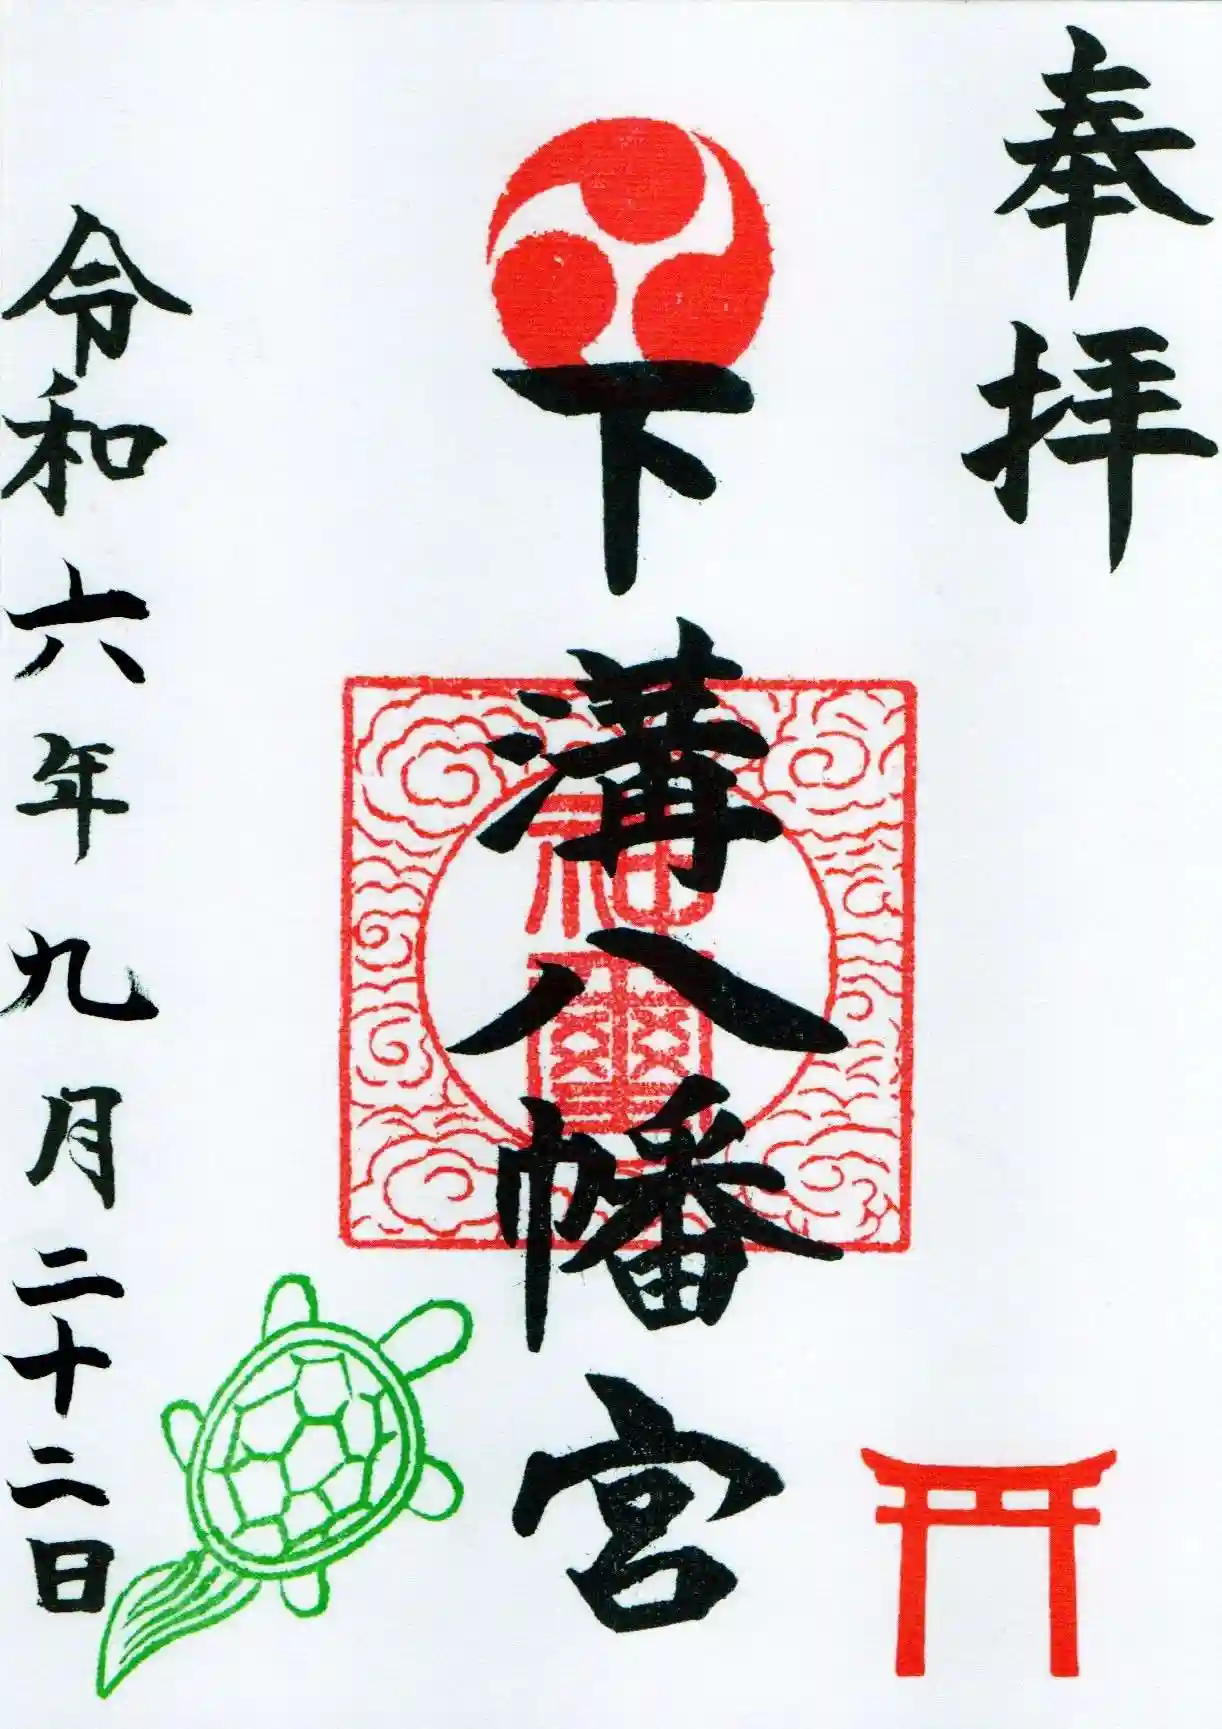 奉拝
下溝八幡宮
神璽
令和六年九月二十二日